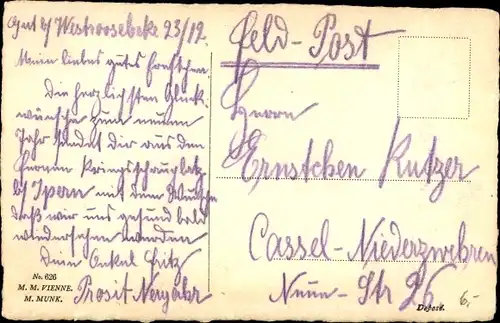 b/ Westroosebeke 23/12.
Mein liebes gutes Ernstchen.
Die herzlichsten Glück-
wünsche zum neuen
Jahr sendet Dir aus dem
fernen Kriegsschauplatz
b/ Ypern mit dem Wunsche
daß wir uns gesund bald
wiedersehen werden
Dein Onkel Fritz
Prosit Neujahr
No. 626
M. M. VIENNE.
M. MUNK.
Feld-Post
Herrn
Ernstchen Kutzer
Cassel-Niederzwehren
Neue-Str 26
Déposé.
6,-